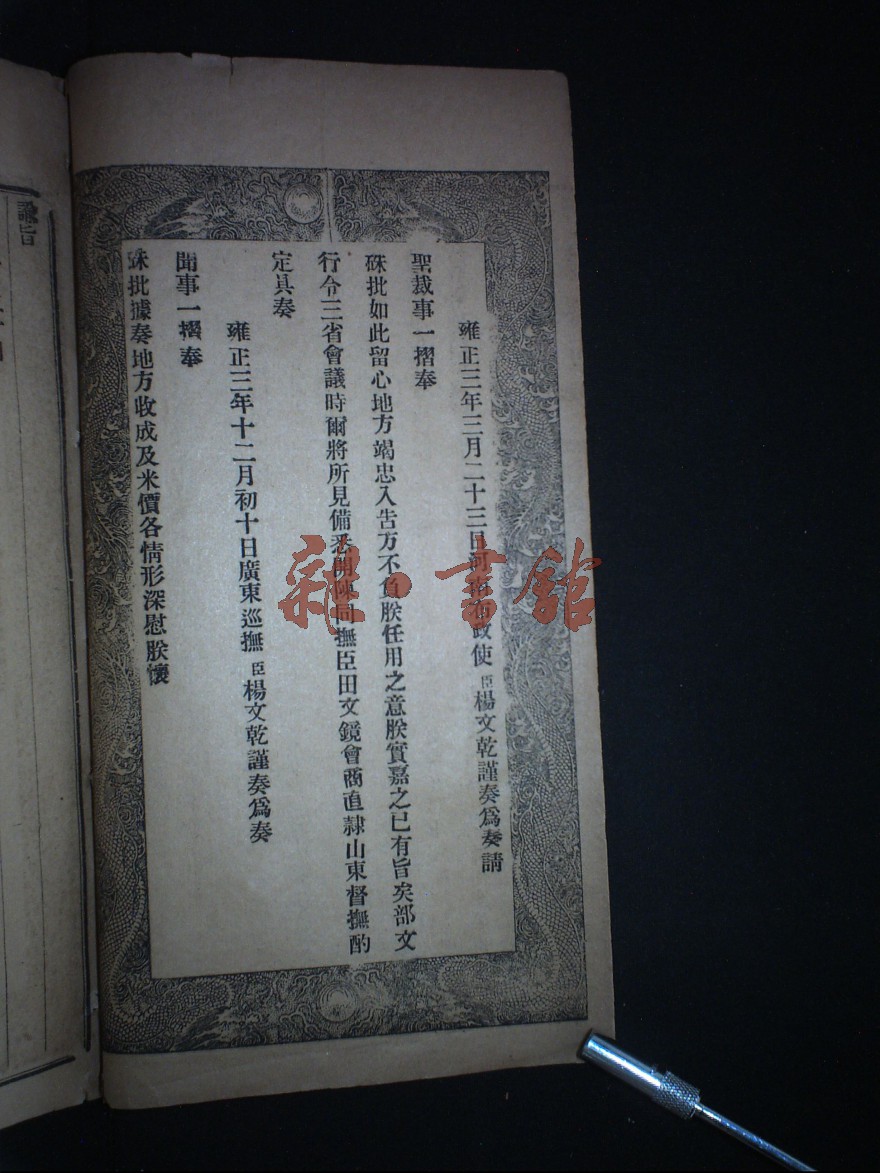 雍正三年三月二十三日河南布政使臣楊文乾謹奏爲奏請
聖裁事一摺奉
硃批如此留心地方竭忠入告方不負朕任用之意朕實嘉之已有旨矣部文
行令三省會議時爾將所見備悉開陳同撫臣田文鏡會商直隸山東督撫酌
定具奏
雍正三年十二月初十日廣東巡撫臣楊文乾謹奏爲奏
聞事一摺奉
硃批據奏地方收成及米價各情形深慰朕懷
諭旨
雜·書館